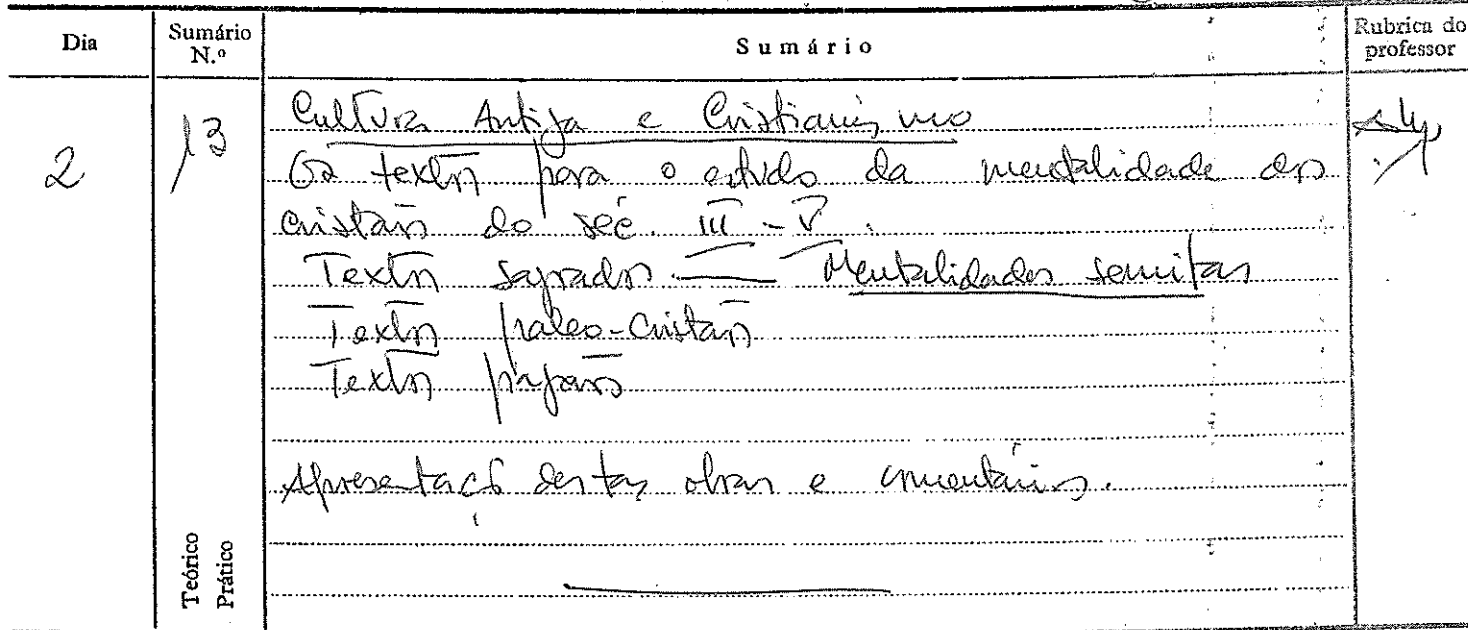 Dia
Sumário N.º
Sumário
Rubrica do professor
2
13
Cultura Antiga e Cristianismo
Os textos para o estudo da mentalidade dos
cristãos do séc. III - V.
Textos sagrados — Mentalidades semitas
Textos paleo-cristãos
Textos pagãos
Apresentação destas obras e comentários.
Teórico
Prático